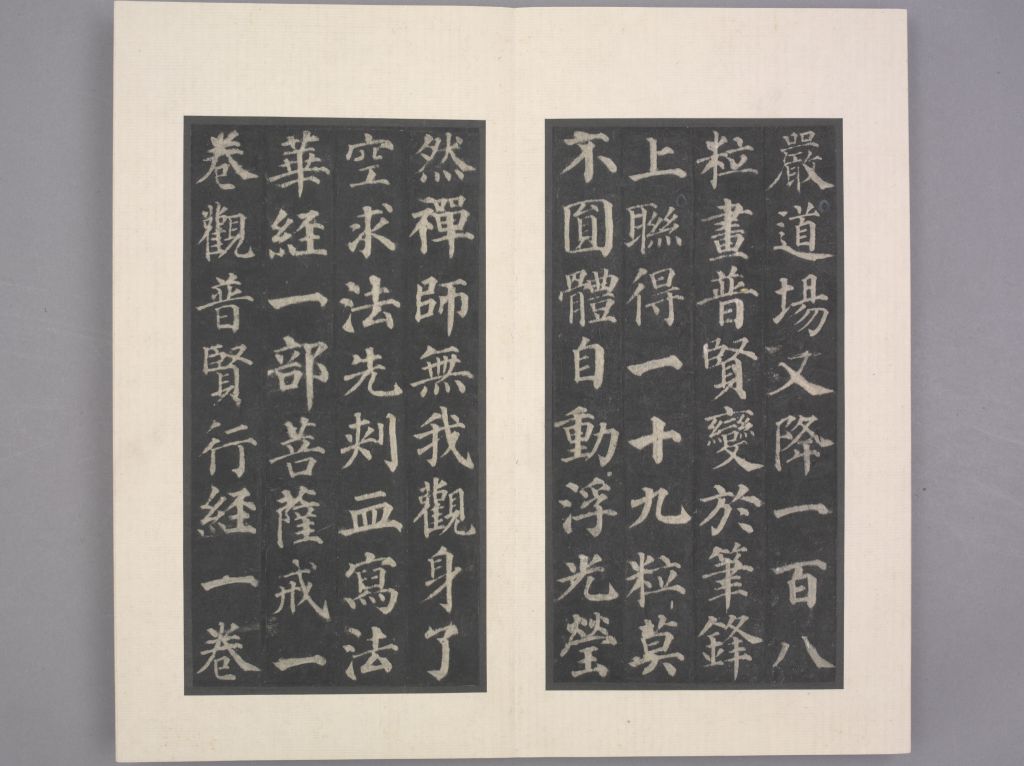 嚴道場又降一百八
粒畫普賢變於筆鋒
上聯得一十九粒莫
不圓體自動浮光瑩
然禪師無我觀身了
空求法先刾血寫法
華經一部菩薩戒一
卷觀普賢行經一卷